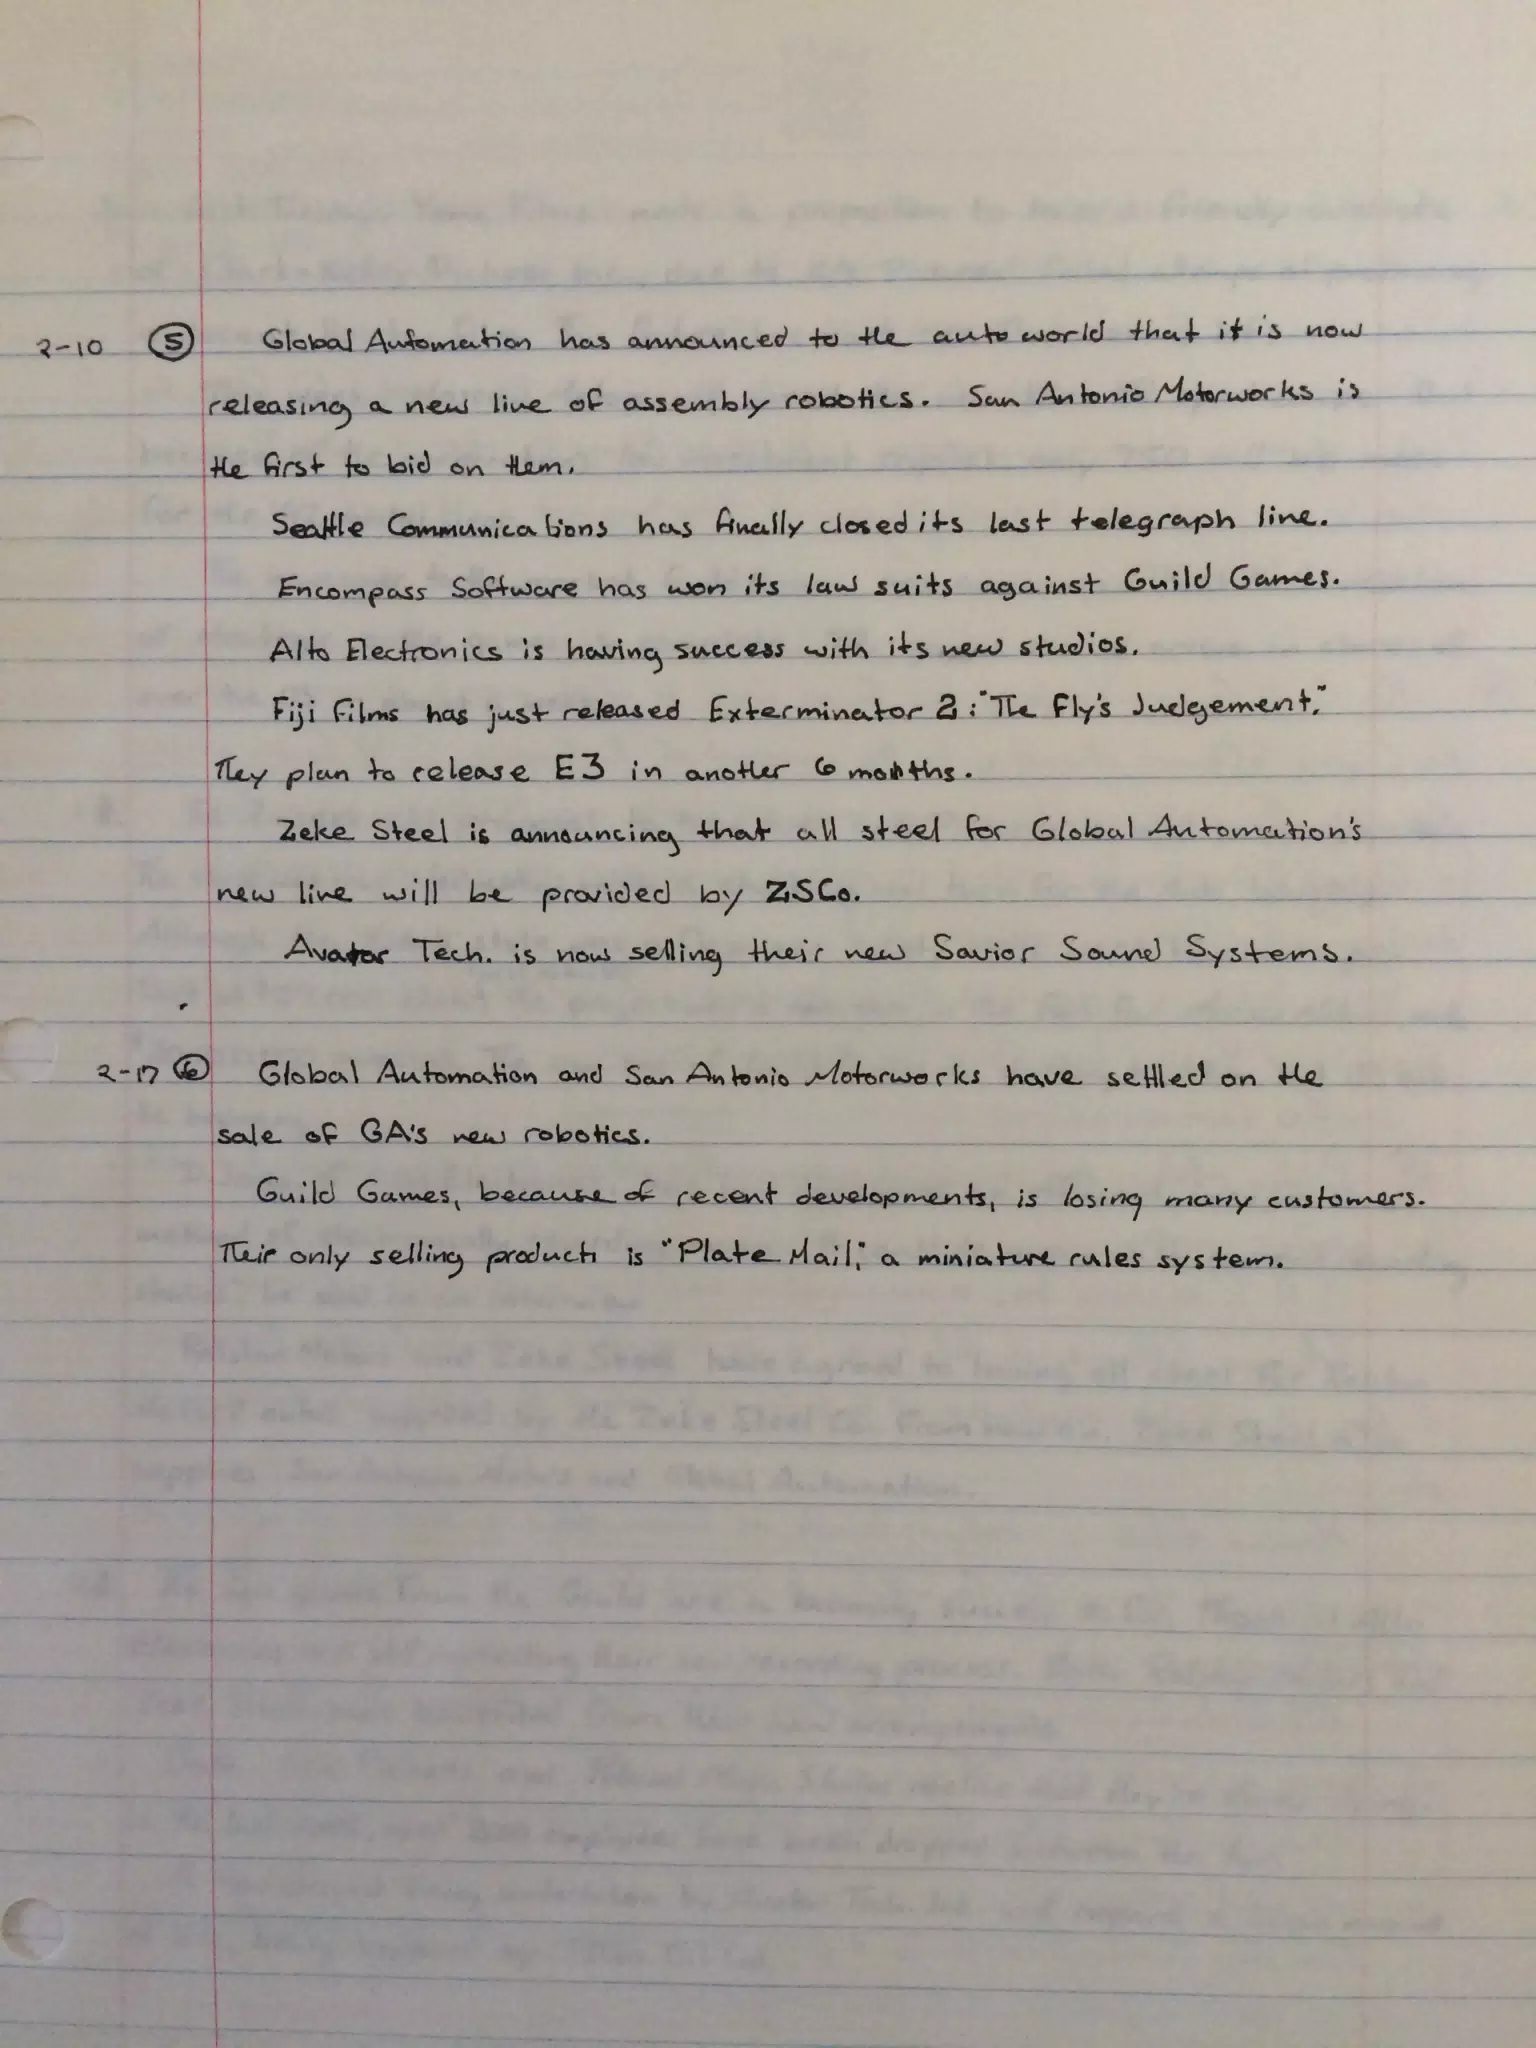 2-10 ⑤ Global Automation has announced to the auto world that it is now
releasing a new line of assembly robotics. San Antonio Motorworks is
the first to bid on them.
Seattle Communications has finally closed its last telegraph line.
Encompass Software has won its law suits against Guild Games.
Alto Electronics is having success with its new studios.
Fiji Films has just released Exterminator 2: "The Fly's Judgement."
They plan to release E3 in another 6 months.
Zeke Steel is announcing that all steel for Global Automation's
new line will be provided by ZSCo.
Avatar Tech. is now selling their new Savior Sound Systems.
2-17 ⑥ Global Automation and San Antonio Motorworks have settled on the
sale of GA's new robotics.
Guild Games, because of recent developments, is losing many customers.
Their only selling product is "Plate Mail," a miniature rules system.